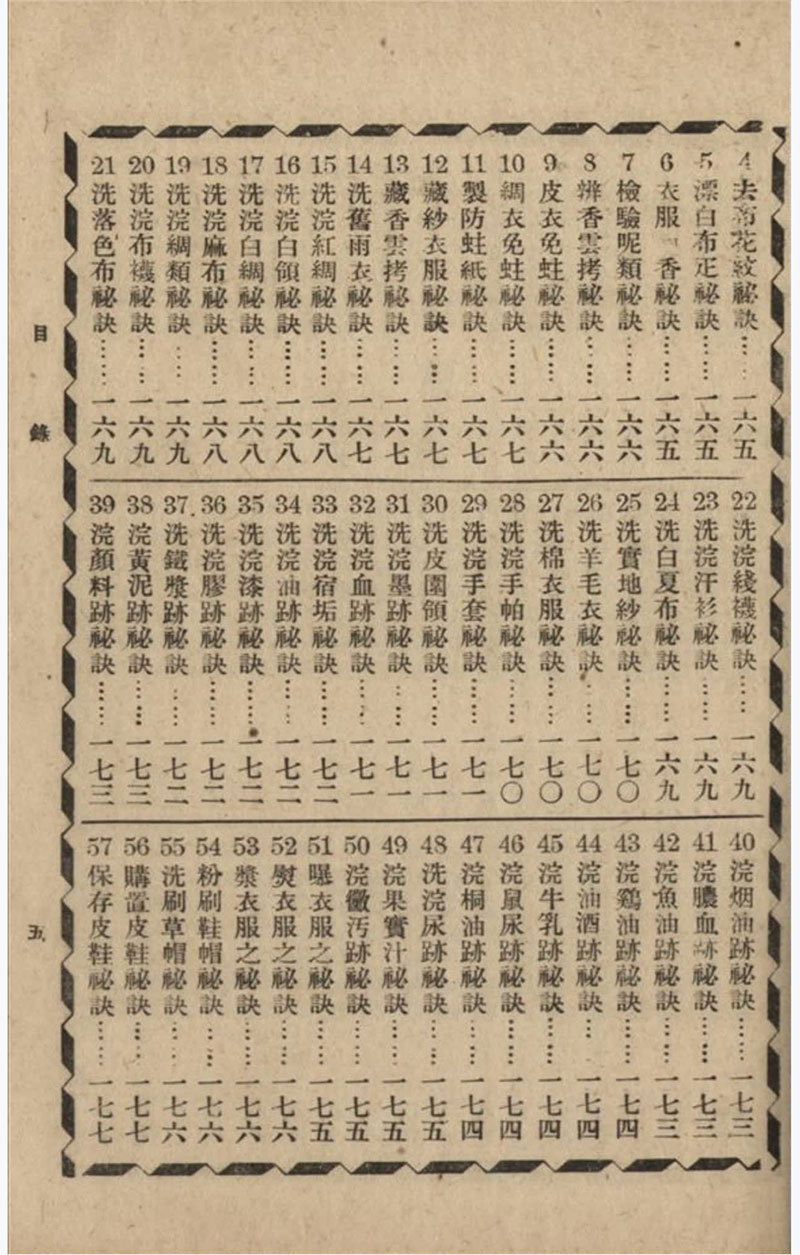 4去布花紋祕訣……一六五
5漂白布疋祕訣……一六五
6衣服一香祕訣……一六五
7檢驗呢類祕訣……一六六
8辨香雲拷祕訣……一六六
9皮衣免蛀祕訣……一六六
10綢衣免蛀祕訣……一六七
11製防蛀紙祕訣……一六七
12藏紗衣服祕訣……一六七
13藏香雲拷祕訣……一六七
14洗舊雨衣祕訣……一六七
15洗浣紅綢祕訣……一六八
16洗浣白領祕訣……一六八
17洗浣白綢祕訣……一六八
18洗浣麻布祕訣……一六八
19洗浣綢類祕訣……一六九
20洗浣布襪祕訣……一六九
21洗落色布祕訣……一六九
22洗浣綫襪祕訣……一六九
23洗浣汗衫祕訣……一六九
24洗白夏布祕訣……一六九
25洗實地紗祕訣……一七〇
26洗羊毛衣祕訣……一七〇
27洗棉衣服祕訣……一七〇
28洗浣手帕祕訣……一七〇
29洗浣手套祕訣……一七一
30洗皮圍領祕訣……一七一
31洗浣墨跡祕訣……一七一
32洗浣血跡祕訣……一七一
33洗浣宿垢祕訣……一七二
34洗浣油跡祕訣……一七二
35洗浣漆跡祕訣……一七二
36洗浣膠跡祕訣……一七二
37洗鐵漿跡祕訣……一七二
38浣黃泥跡祕訣……一七三
39浣顏料跡祕訣……一七三
40浣烟油跡祕訣……一七三
41浣膿血跡祕訣……一七三
42浣魚油跡祕訣……一七三
43浣鷄油跡祕訣……一七四
44浣油酒跡祕訣……一七四
45浣牛乳跡祕訣……一七四
46浣鼠尿跡祕訣……一七四
47浣桐油跡祕訣……一七四
48洗浣尿跡祕訣……一七五
49浣果實汁祕訣……一七五
50浣黴汚跡祕訣……一七五
51曝衣服之祕訣……一七五
52熨衣服之祕訣……一七六
53漿衣服之祕訣……一七六
54粉刷鞋帽祕訣……一七六
55洗刷草帽祕訣……一七六
56購置皮鞋祕訣……一七七
57保存皮鞋祕訣……一七七
目錄
五